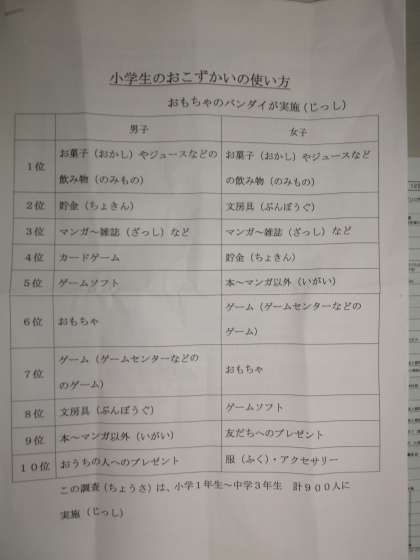 小学生のおこずかいの使い方
おもちゃのバンダイが実施(じっし)
男子 女子
1位 お菓子(おかし)やジュースなどの飲み物(のみもの) お菓子(おかし)やジュースなどの飲み物(のみもの)
2位 貯金(ちょきん) 文房具(ぶんぼうぐ)
3位 マンガ~雑誌(ざっし)など マンガ~雑誌(ざっし)など
4位 カードゲーム 貯金(ちょきん)
5位 ゲームソフト 本~マンガ以外(いがい)
6位 おもちゃ ゲーム(ゲームセンターなどのゲーム)
7位 ゲーム(ゲームセンターなどののゲーム) おもちゃ
8位 文房具(ぶんぼうぐ) ゲームソフト
9位 本~マンガ以外(いがい) 友だちへのプレゼント
10位 おうちの人へのプレゼント 服(ふく)・アクセサリー
この調査(ちょうさ)は、小学1年生~中学3年生 計900人に
実施(じっし)